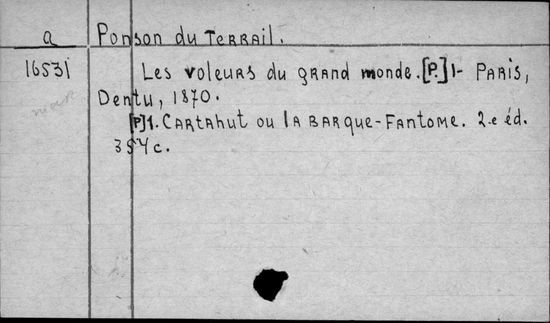 a Ponson du Terrail.
16531 Les voleurs du grand monde. [P.] 1- Paris,
Dentu, 1870.
[P] 1. Cartahut ou la Barque-Fantome. 2-e éd.
354 c.